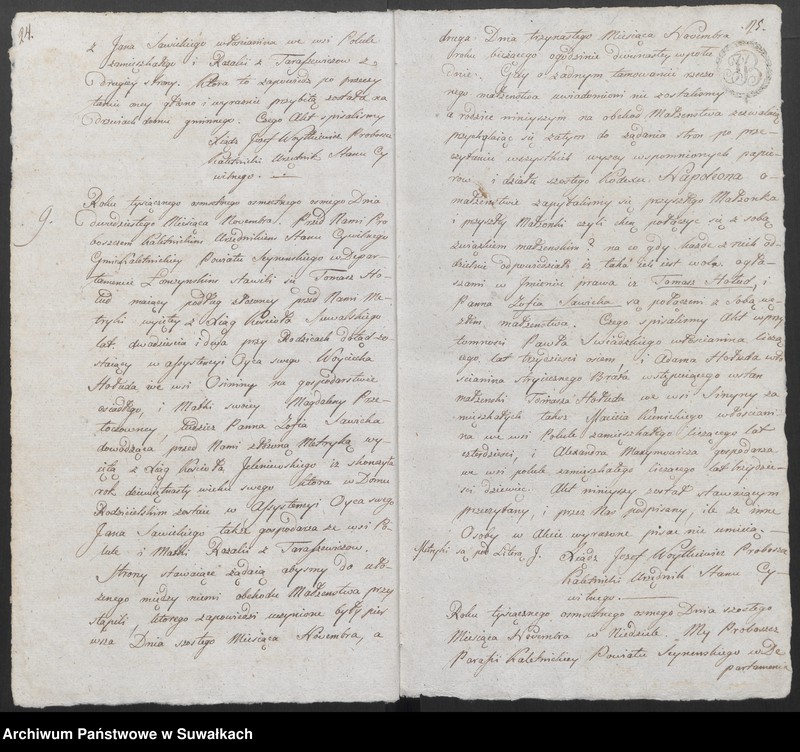 24.
z Jana Sawickiego włościanina we wsi Polule
zamieszkałego i Rozalii z Taraszewiczow z
drugiey strony. Ktora to zapowiedz po przeczy
taniu oney głośno i wyraznie przybitą została na
drzwiach domu gminnego. Czego Akt spisaliśmy
Xiądz Jozef Woytkiewicz Proboszcz
Kaletnicki Urzędnik Stanu Cy
wilnego.
9.
Roku tysiącznego osmsetnego osmego Dnia
dwudziestego Miesiąca Novembra. Przed Nami Pro
boszczem Kaletnickim Urzędnikiem Stanu Cywilnego
Gminy Kaletnickiey Powiatu Seynenskiego w Depar
tamencie Łomzynskim stawili się Tomasz Ho
łud maiący podług złożoney przed Nami Me
tryki wyiętey z Xiąg Kościoła Suwalskiego
lat dwadzieścia i dwa przy Rodzicach dotąd zo
staiący w assystencyi Oyca swego Woyciecha
Hołuda we wsi Osinny na gospodarstwie
osiadłego, i Matki swoiey Magdaleny
tudziez Panna Zofia Sawicka
dowodząca przed Nami złożoną Metryką wy
iętą z Xiąg Kościoła Jeleniewskiego iz skonczyła
rok dziewiętnasty wieku swego ktora w Domu
Rodzicielskim zostaie w Assystencyi Oyca swego
Jana Sawickiego także gospodarza ze wsi Po
lule i Matki Rozalii z Taraszewiczow.
Strony stawaiące żądaią abysmy do uło
żonego między niemi obchodu Małżenstwa przy
stąpili ktorego zapowiedzi uczynione były pier
wsza Dnia szostego Miesiąca Novembra, a
115.
druga Dnia trzynastego Miesiąca Novembra
roku bieżącego ogodzinie dwunastey wpołu
dnie. Gdy o żadnym tamowaniu rzeczo
nego małżenstwa uwiadomieni nie zostalismy
a rodzice niniejszym na obchod Małżenstwa zezwalaią
przychylaiąc się zatym do żądania stron po prze
czytaniu wszystkich wyżey wspomnionych papie
row i działu szostego Kodexu Napoleona o
małżenstwie zapytalismy się przyszłego Małżonka
i przyszłey Małżonki czyli chcą połączyc się z sobą
związkiem małżenskim? na co gdy każde z nich od
dzielnie odpowiedziało iż taka iest ich wola. ogła
szamy w Imieniu prawa iz Tomasz Hołud, i
Panna Zofia Sawicka są połączeni z sobą wę
złem małżenstwa. Czego spisalismy Akt wprzy
tomnosci Pawła Swiadzkiego włościanina liczą
cego, lat trzydziesci osiem i Adama Hołuda wło
scianina stryiecznego Brata wstępuiącego wstan
małzenski Tomasza Hołuda we wsi Sinyny za
mieszkałych takze Macieia Kunickiego włosciani
na we wsi Polule zamieszkałego liczącego lat
czterdziesci, i Alexandra Maxymowicza gospodarza
we wsi polule zamieszkałego liczącego lat trzydzie
sci dziewięć. Akt ninieyszy został stawaiącym
przeczytany, i przez Nas podpisany, ile że inne
Osoby w Akcie wyrażone pisac nie umieią.
Metryki są pod Literą J.
Xiądz Jozef Woytkiewicz Proboszcz
Kaletnicki Urzędnik Stanu Cy
wilnego.
Roku tysiącznego osmsetnego osmego Dnia szostego
Miesiąca Novembra w Niedziele. My Proboszcz
Parafii Kaletnickiey Powiatu Seynenskiego w De
partamencie
Archiwum Państwowe w Suwałkach